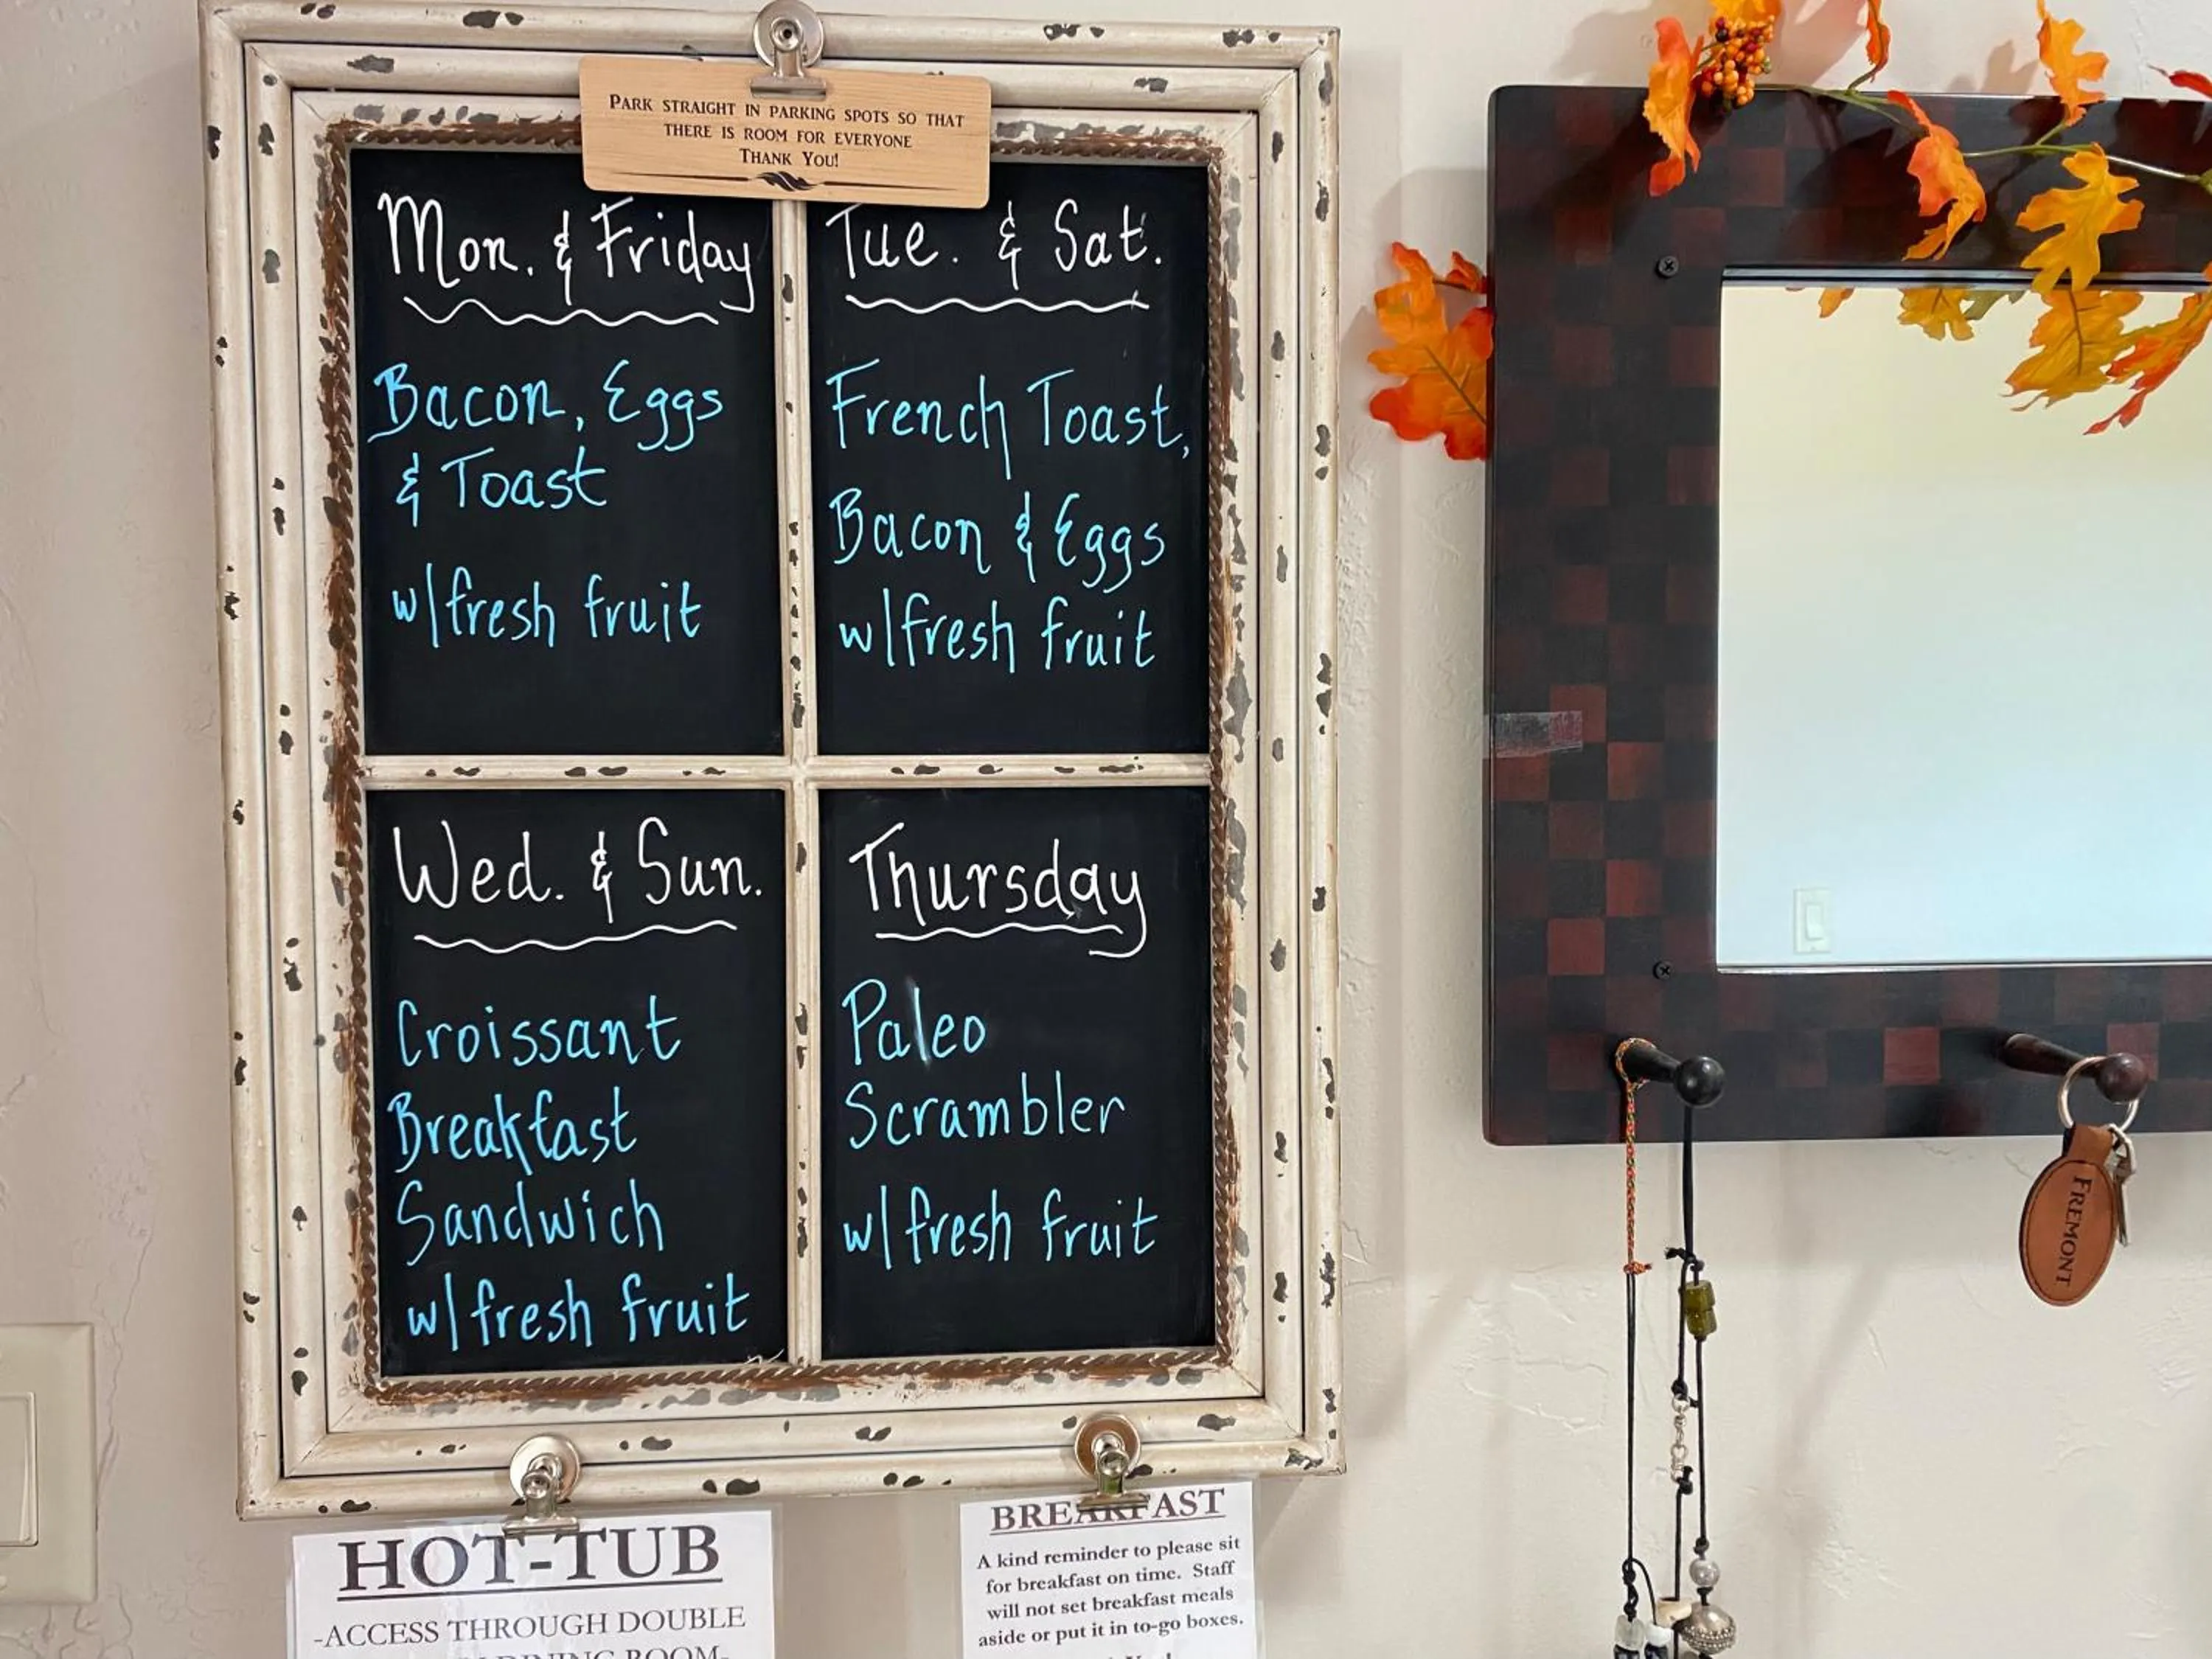 PARK STRAIGHT IN PARKING SPOTS SO THAT
THERE IS ROOM FOR EVERYONE
THANK YOU!
Mon. & Friday
Bacon, Eggs
& Toast
w/fresh fruit
Tue. & Sat.
French Toast,
Bacon & Eggs
w/fresh fruit
Wed. & Sun.
Croissant
Breakfast
Sandwich
w/fresh fruit
Thursday
Paleo
Scrambler
w/fresh fruit
HOT-TUB
-ACCESS THROUGH DOUBLE
DINING ROOM-
BREAKFAST
A kind reminder to please sit
for breakfast on time. Staff
will not set breakfast meals
aside or put it in to-go boxes.
FREMONT